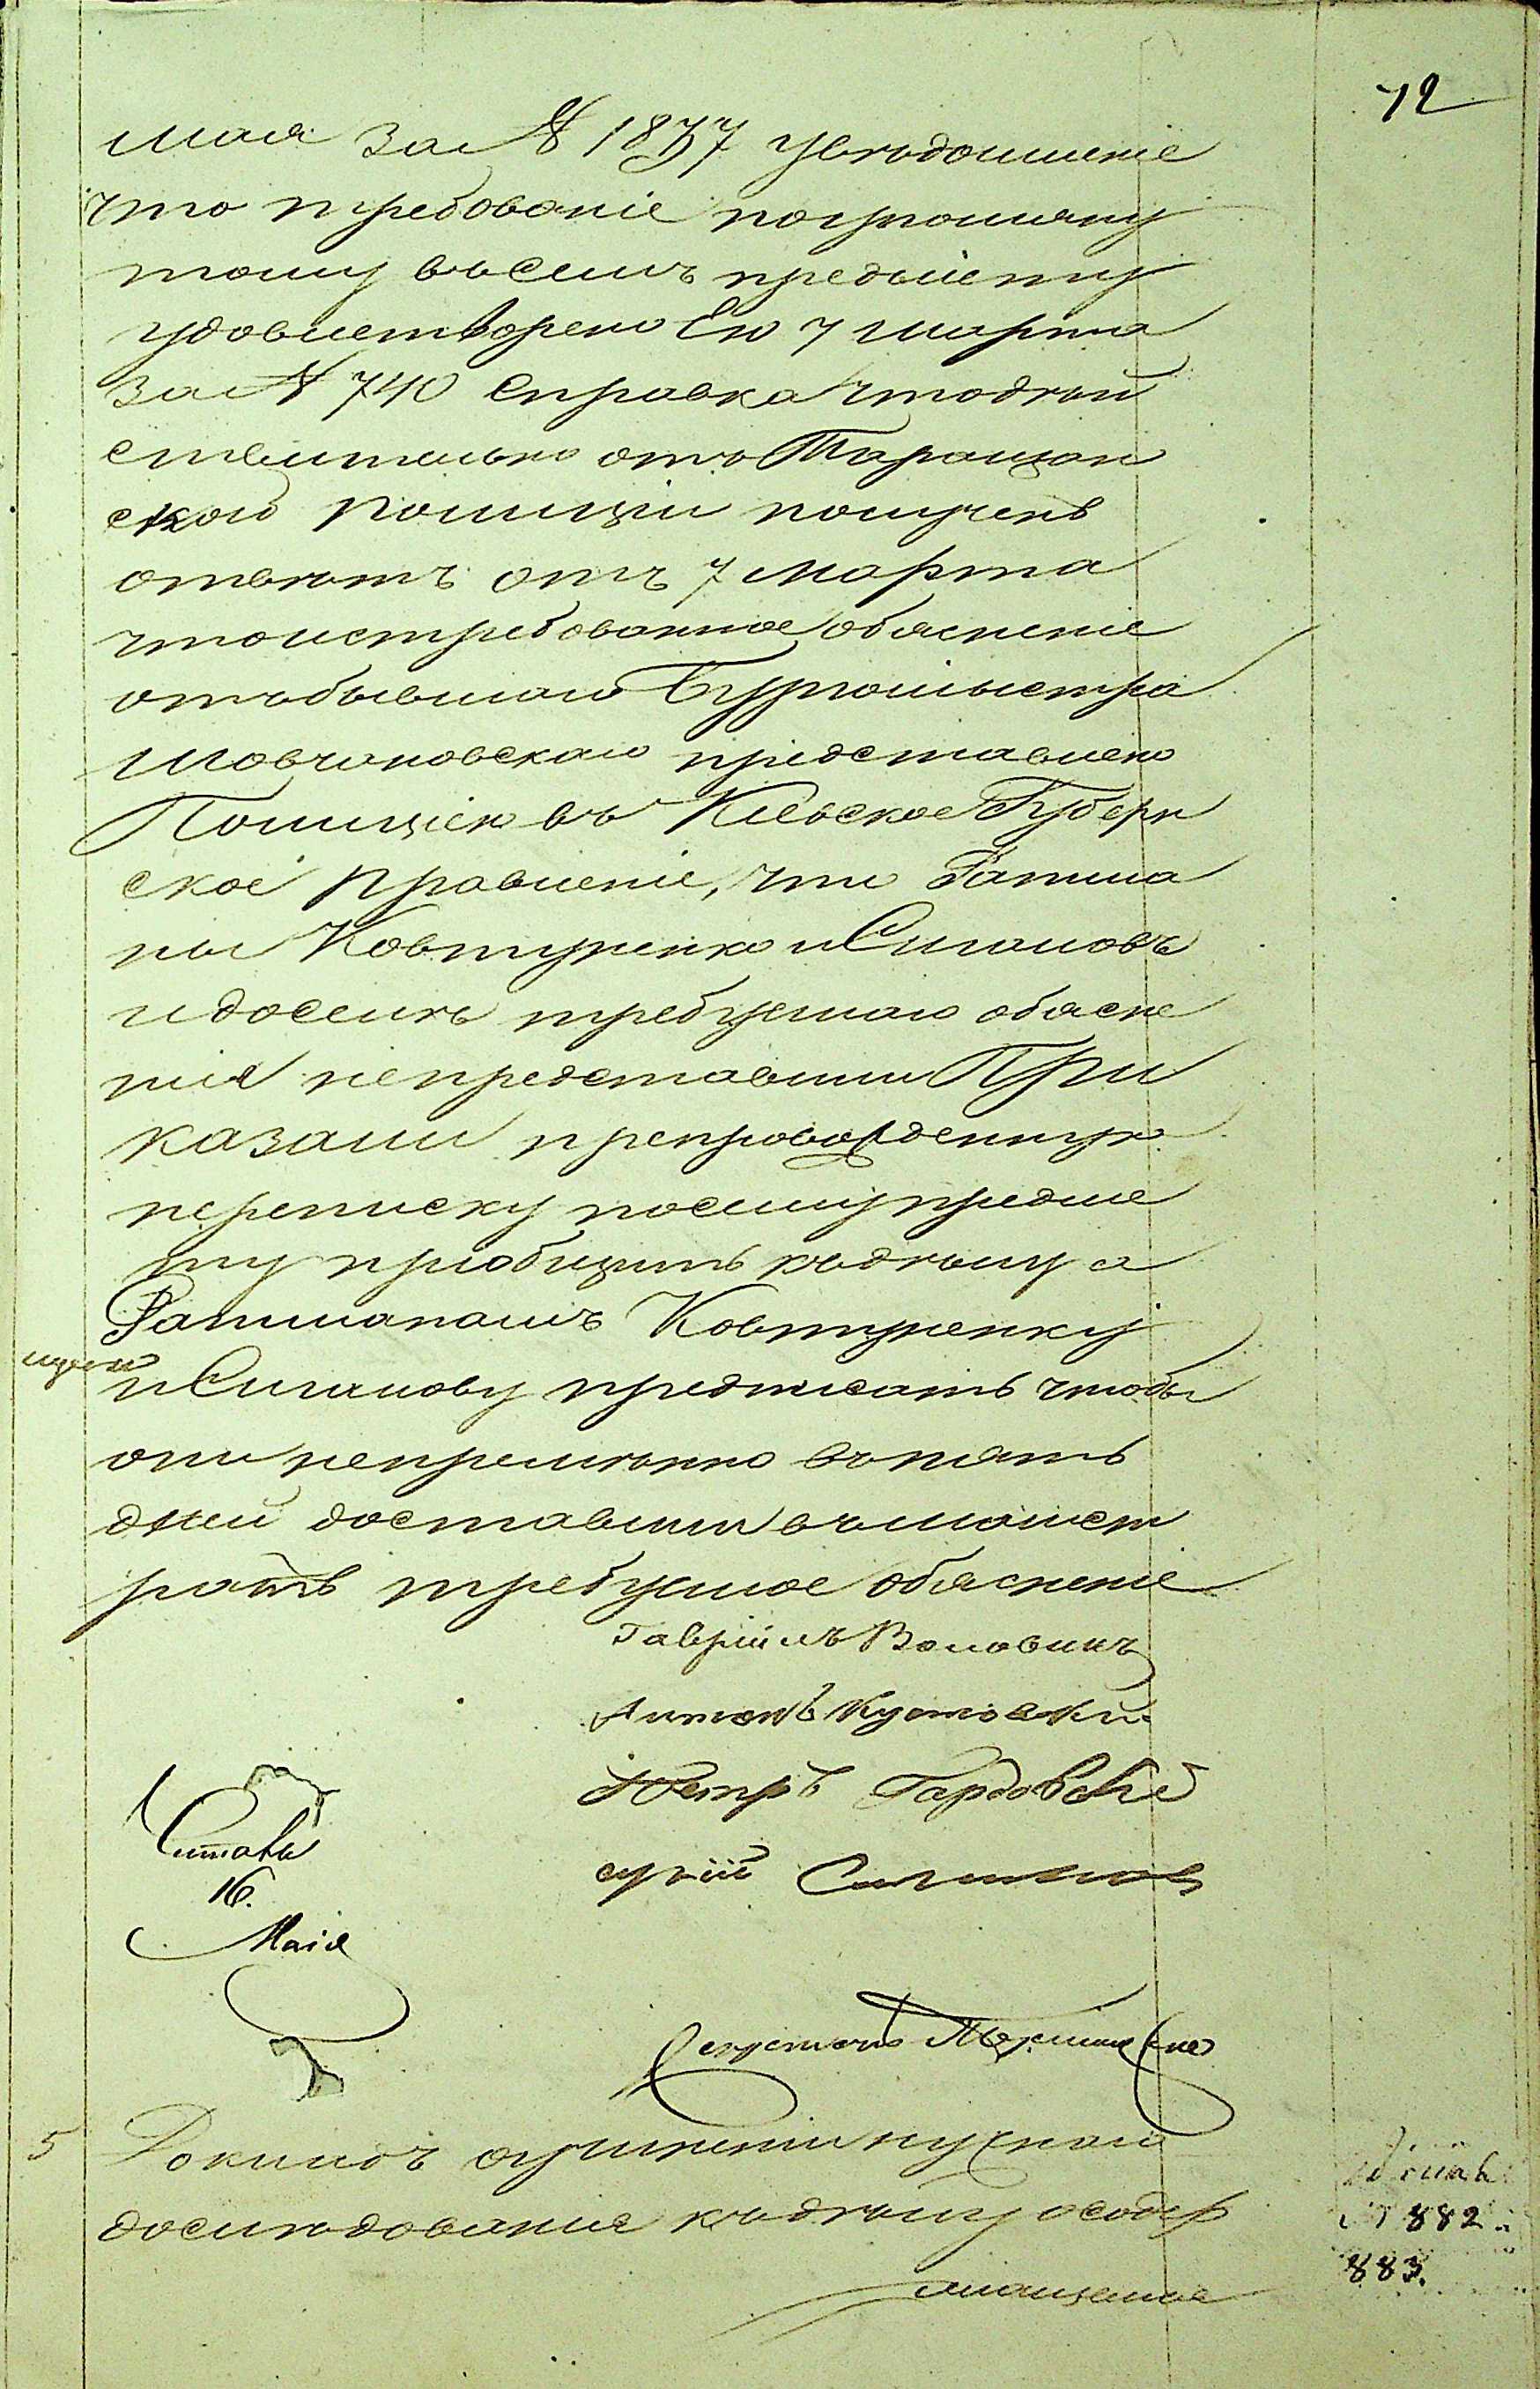 72
мая за № 1837 увѣдомленіе
что требованіе поупомяну
тому въсемъ предмету
удовлетворено Ею 7 марта
за № 740 Справка чтодѣй
ствительно отъ Таращан
ской Полиціи полученъ
отвѣтъ отъ 7 Марта
чтоистребованное обясненіе
отъбывшаго Бургомистра
Мовчановскаго представлено
Полиціею въ Кіевское Губерн
ское Правленіе, что Ратма
ны Ковтуненко иСигаловъ
идосемъ требуемаго обясне
нія непредставили При
казали препровожденную
переписку посемупредме
ту пріобщить къдѣлу а
Ратманамъ Ковтуненку
иСигалову предписать чтобы
они непремѣнно въпять
дней доставили вмагист
ратъ требуемое обясненіе
Гавріилъ Воловикъ
Антонъ Кутовскій
Петръ Гардовскій
Читалъ
16.
Маія
Секретарь
5
Докладъ оучиненіи нужнаго
дослѣдованія къдѣлу осодер
жащемся
882
883.